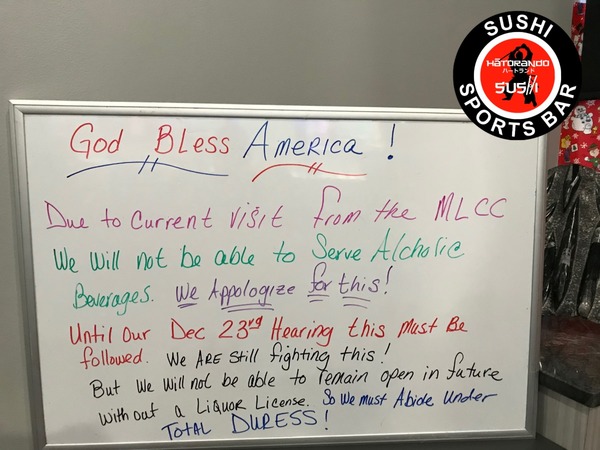 SUSHI
HATORANDO
ハートランド
SUSHI
SPORTS BAR
God Bless America!
Due to current visit from the MLCC
We will not be able to Serve Alcholic
Beverages. We Appologize for this!
Until our Dec 23rd Hearing this must Be
followed. We ARE still fighting this!
But we will not be able to remain open in future
without a Liquor License. So we must Abide under
Total DURESS!